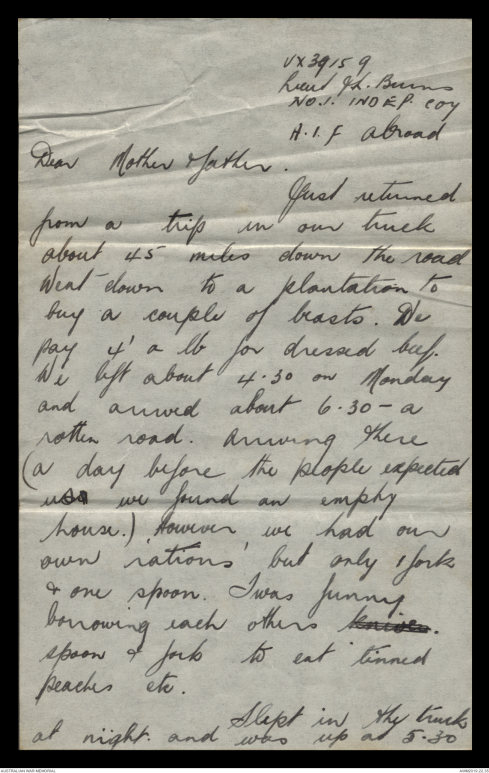 VX39159
Lieut J.L. Burns
NO.1. INDEP. COY
A.I.F abroad
Dear Mother & father.
Just returned
from a trip in our truck
about 45 miles down the road
Went down to a plantation to
buy a couple of beasts. We
pay 4' a lb for dressed beef.
We left about 4.30 on Monday
and arrived about 6.30 - a
rotten road. Arriving there
(a day before the people expected
us we found an empty
house.) However we had our
own rations but only 1 fork
& one spoon. Twas funny
borrowing each others knives.
spoon & fork to eat tinned
peaches etc.
Slept in the truck
at night and was up at 5.30
AUSTRALIAN WAR MEMORIAL